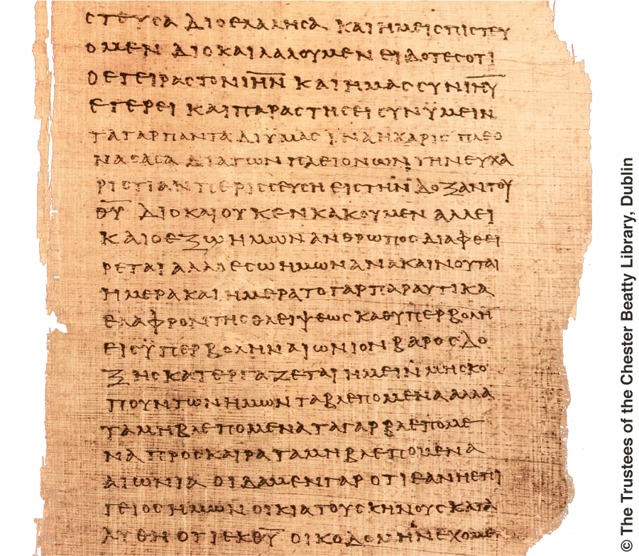 ϹΤΕΥϹΑ ΔΙΟ ΕΛΑΛΗϹΑ ΚΑΙ ΗΜΕΙϹ ΠΙϹΤΕΥ
ΟΜΕΝ ΔΙΟ ΚΑΙ ΛΑΛΟΥΜΕΝ ΕΙΔΟΤΕϹ ΟΤΙ
Ο ΕΓΕΙΡΑϹ ΤΟΝ Ι̅Η̅Ν̅ ΚΑΙ ΗΜΑϹ ϹΥΝ Ι̅Η̅Υ̅
ΕΓΕΡΕΙ ΚΑΙ ΠΑΡΑϹΤΗϹΕΙ ϹΥΝ ΫΜΕΙΝ
ΤΑ ΓΑΡ ΠΑΝΤΑ ΔΙ ΥΜΑϹ ΙΝΑ Η ΧΑΡΙϹ ΠΛΕΟ
ΝΑϹΑϹΑ ΔΙΑ ΤΩΝ ΠΛΕΙΟΝΩΝ ΤΗΝ ΕΥΧΑ
ΡΙϹΤΙΑΝ ΠΕΡΙϹϹΕΥϹΗ ΕΙϹ ΤΗΝ ΔΟΞΑΝ ΤΟΥ
Θ̅Υ̅ ΔΙΟ ΚΑΙ ΟΥΚ ΕΝΚΑΚΟΥΜΕΝ ΑΛΛ ΕΙ
ΚΑΙ Ο ΕΞΩ ΗΜΩΝ ΑΝΘΡΩΠΟϹ ΔΙΑΦΘΕΙ
ΡΕΤΑΙ ΑΛΛ Ο ΕϹΩ ΗΜΩΝ ΑΝΑΚΑΙΝΟΥΤΑΙ
ΗΜΕΡΑ ΚΑΙ ΗΜΕΡΑ ΤΟ ΓΑΡ ΠΑΡΑΥΤΙΚΑ
ΕΛΑΦΡΟΝ ΤΗϹ ΘΛΕΙΨΕΩϹ ΚΑΘ ΥΠΕΡΒΟΛΗ
ΕΙϹ ΫΠΕΡΒΟΛΗΝ ΑΙΩΝΙΟΝ ΒΑΡΟϹ ΔΟ
ΞΗϹ ΚΑΤΕΡΓΑΖΕΤΑΙ ΗΜΕΙΝ ΜΗ ϹΚΟ
ΠΟΥΝΤΩΝ ΗΜΩΝ ΤΑ ΒΛΕΠΟΜΕΝΑ ΑΛΛΑ
ΤΑ ΜΗ ΒΛΕΠΟΜΕΝΑ ΤΑ ΓΑΡ ΒΛΕΠΟΜΕ
ΝΑ ΠΡΟϹΚΑΙΡΑ ΤΑ ΜΗ ΒΛΕΠΟΜΕΝΑ
ΑΙΩΝΙΑ ΟΙΔΑΜΕΝ ΓΑΡ ΟΤΙ ΕΑΝ Η ΕΠΙ
ΓΕΙΟϹ ΗΜΩΝ ΟΙΚΙΑ ΤΟΥ ϹΚΗΝΟΥϹ ΚΑΤΑ
ΛΥΘΗ ΟΤΙ ΕΚ Θ̅Υ̅ ΟΙΚΟΔΟΜΗΝ ΕΧΟΜΕ
© The Trustees of the Chester Beatty Library, Dublin